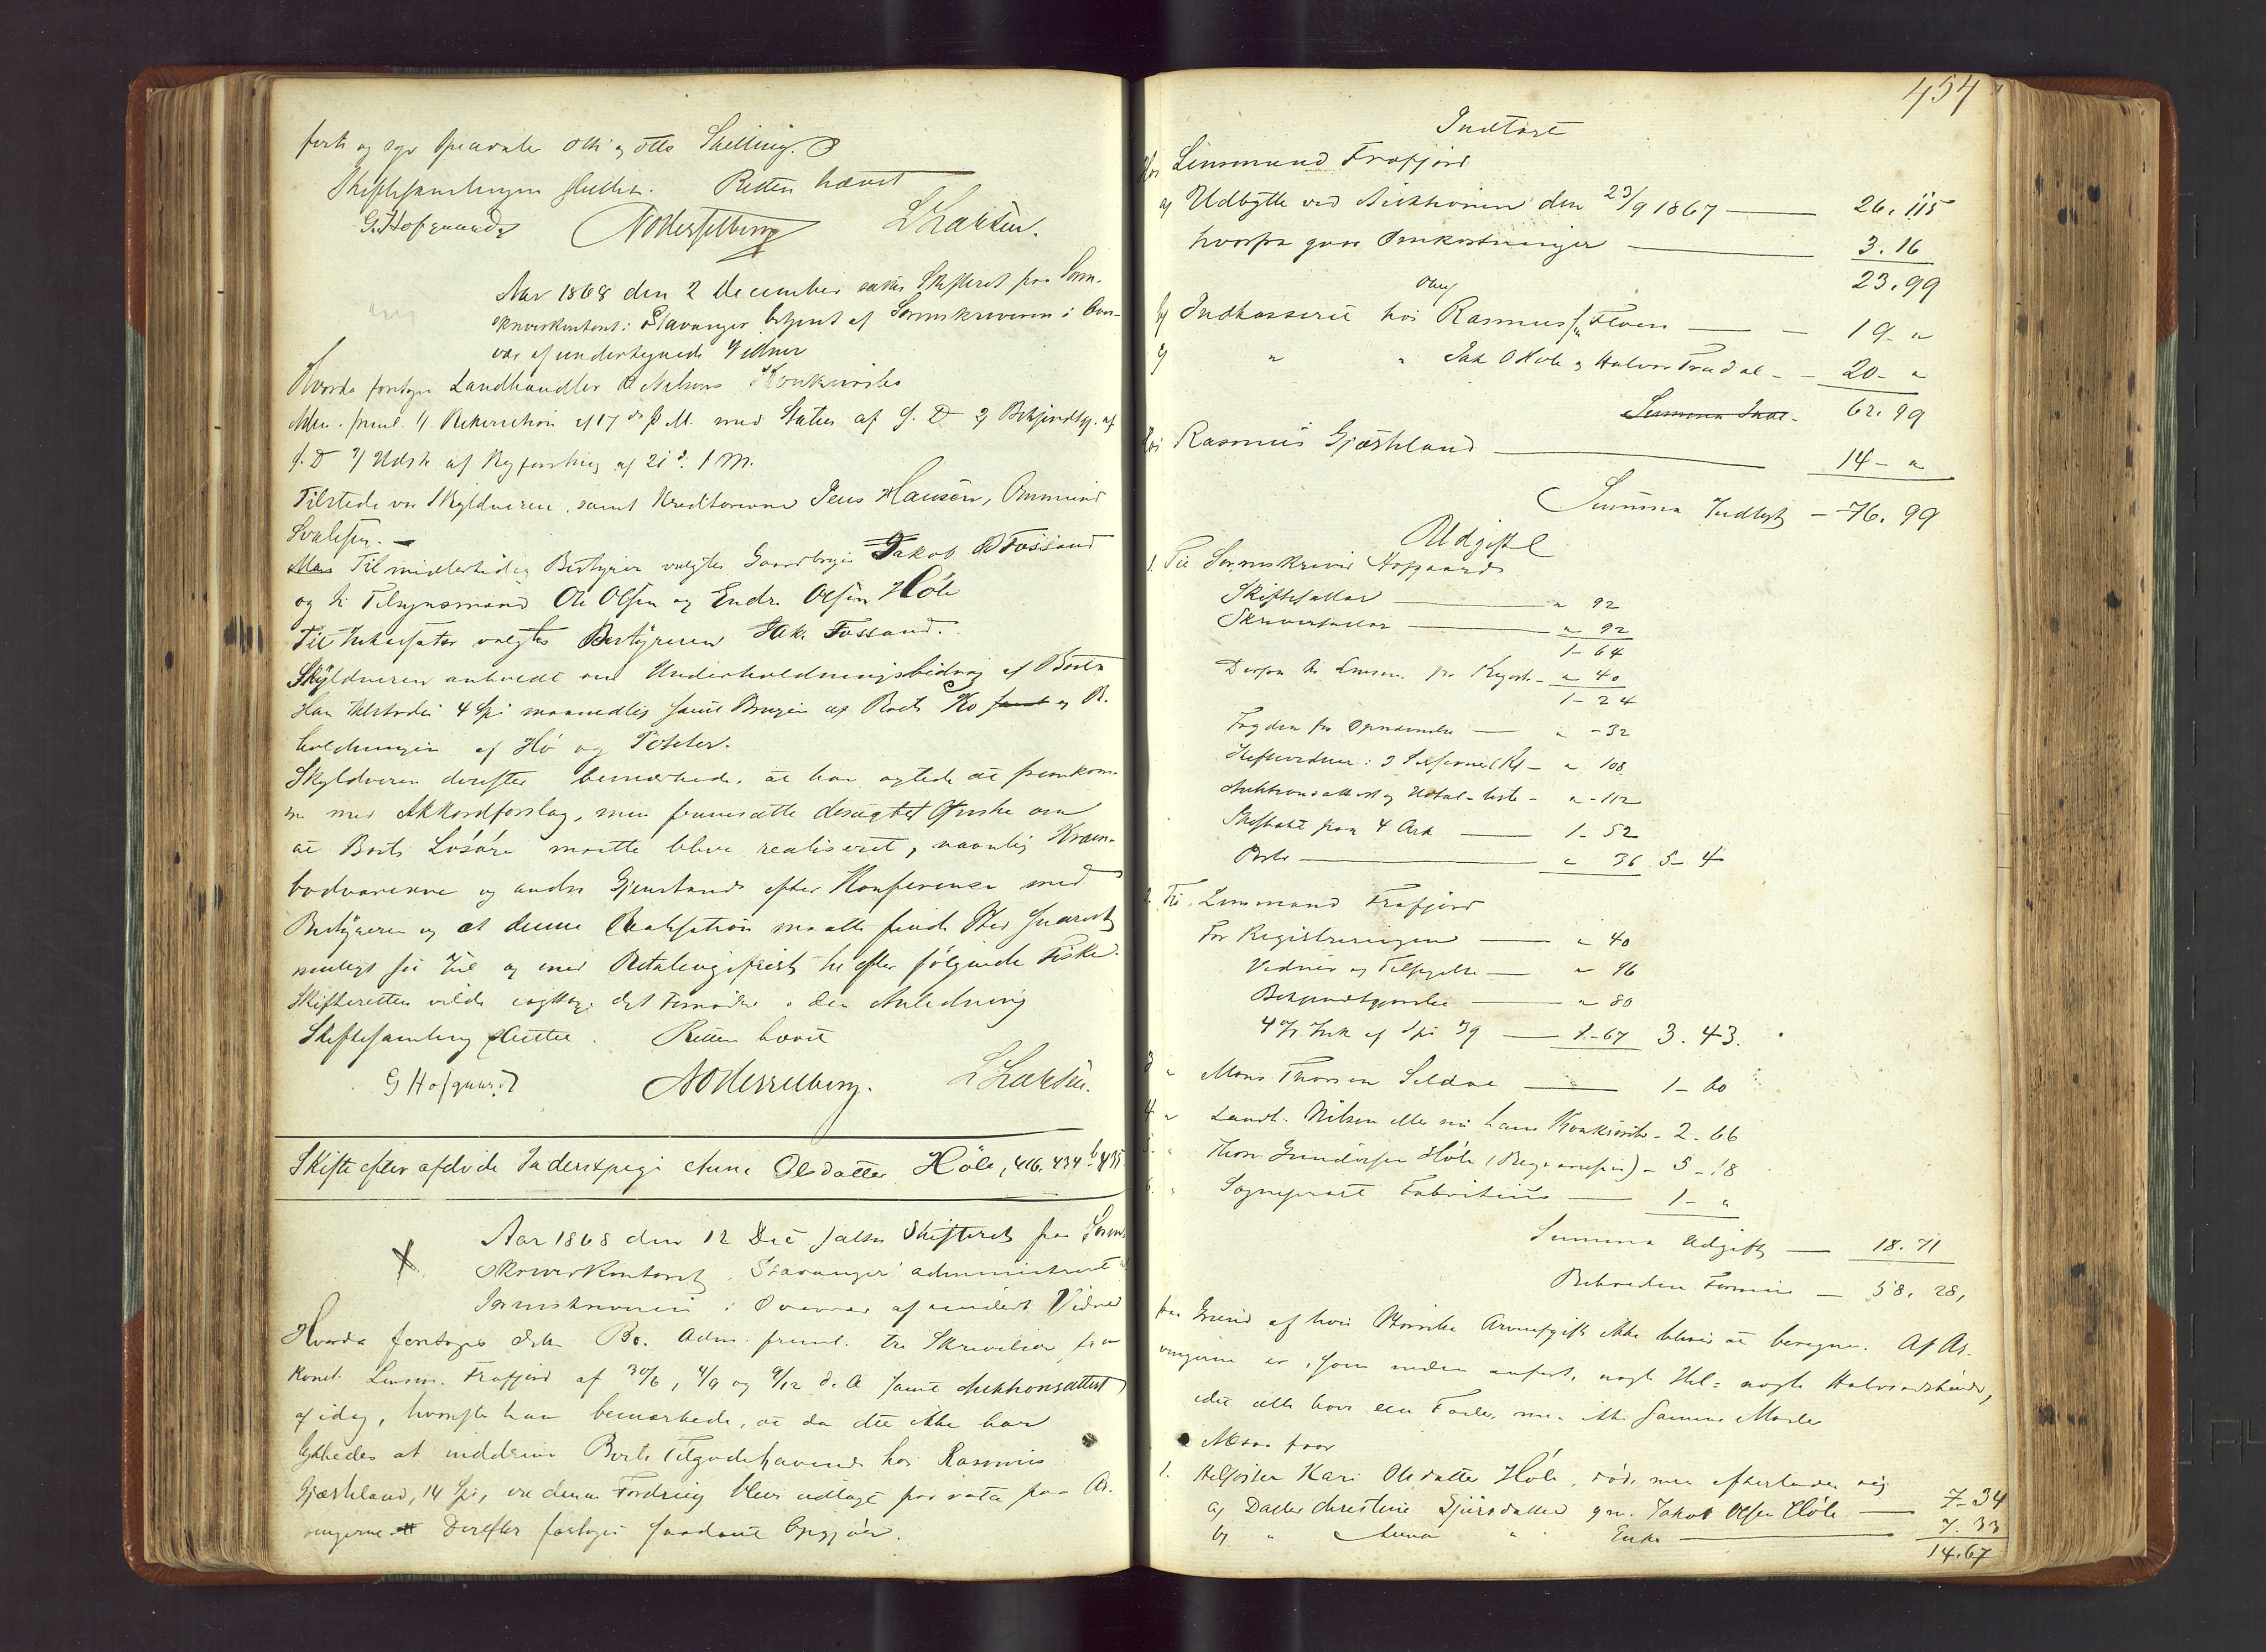 og syv Specidaler otte og otte Skilling.
Skiftesamlingen sluttet. Retten hævet
G. Hofgaard NO Hesselberg L Larsen.
Aar 1868 den 2 December sattes Skifteret paa Soren-
skriverkontoret i Stavanger betjent af Sorenskriveren i Over-
vær af undertegnede Vidner
Hvorda foretoges Landhandler Nilsens Konkursbo
Adm. freml. 1) Rekvisition af 17 d. M. med Status af s. D. 2) Bekjendtg. af
s. D. 3) Udsk af Registrering af 21 d. M.
Tilstede var Skyldneren samt Kreditorerne Jens Hansen, Ommund
Svalesen. —
Til midlertidig Bestyrer valgtes Gaardbruger Jakob Fossand
og til Tilsynsmænd Ole Olsen og Endre Olsen Høle
Til Inkassator valgtes Bestyreren Jak. Fossand.
Skyldneren anholdt om Underholdningsbidrag af Boet
Han tilstodes 4 Spd maanedlig samt Brugen af Boets Ko og Be-
holdningen af Hø og Poteter.
Skyldneren derefter bemærkede, at han agtede at fremkom-
me med Akkordforslag, men fremsatte desuagtet Ønske om
at Boets Løsøre maatte blive realiseret, navnlig Kram-
bodvarerne og andre Gjenstande efter Konference med
Bestyreren og at denne Realisation maatte finde Sted snarest
muligt før Jul og med Betalingsfrist til efter følgende Fiske.
Skifteretten vilde iagttage det Fornødne i den Anledning
Skiftesamling sluttet. Retten hævet
G Hofgaard NO Hesselberg. L Larsen.
Skifte efter afdøde Inderstpige Anna Olsdatter Høle, 416. 434 b 435
Aar 1868 den 12 Dec sattes Skifteret paa Soren-
skriverkontoret i Stavanger administreret af
Sorenskriveren i Overvær af undert Vidner
Hvorda foretoges dette Bo. Adm. freml. tre Skrivelser fra
Konst. Lensm. Frafjord af 30/6, 4/9 og 9/12 d. A samt Auktionsattest
af idag, hvorefter han bemærkede, at da det ikke har
lykkedes at inddrive Boets Tilgodehavende hos Rasmus
Gjæskeland, 14 Spd, vil denne Fordring blive udlagt pro rata paa Ar-
vingerne. Derefter foretoges saadant Opgjør.
454
Indtægt
Hos Lensmand Frafjord
a) Udbytte ved Auktionen den 23/9 1867 — 26. 115
hvorfra gaar Omkostninger — 3. 16
23. 99
b) Indkasseret hos Rasmus Floen — 19 - "
c) " " Jak O Høle og Halvor Trædal - 20 - "
Summa Indt. 62. 99
Hos Rasmus Gjæskeland — 14 - "
Summa Indtægt — 76. 99
Udgift
1. Til Sorenskriver Hofgaard
Skiftesallar — " 92
Skriversallar — " 92
1 - 64
Derfra til Lensm. for Registr — " 40
1 - 24
Fogden for — " - 32
Skiftevidner i 3 — " 108
Auktionsattest og — " - 112
Skifteakt paa 4 Ark — 1 - 52
Porto — " 36 5 - 4
2. Til Lensmand Frafjord
For Registreringen — " 40
Vidner og — " 96
Bekjendtgjørelse — " 80
4 % Ink af Spd 39 — 1 - 67 3. 43.
3 " Mons Thorsen Seldal — 1 - 60
4 " Landh. Nilsen eller nu hans Konkursbo - 2. 66
5. " Thore Gundersen Høle (Begravelsen) - 5 - 18
6. " Sogneprest Fabritius — 1 - "
Summa Udgift — 18. 71
Beholden Formue — 58. 28,
paa Grund af hvis Størrelse Arveafgift ikke bliver at beregne. Af Ar-
vingerne er, som neden anført, nogle Hel- nogle Halvsødskende,
idet alle have een Fader, men ikke samme Moder
Altsaa faar
1. Helsøster Kari Olsdatter Høle, død, men efterlader sig
a) Datter Christine Sjursdatter g.m. Jakob Olsen Høle — 7 - 34
b) " Anna " Enke — 7. 33
14. 67